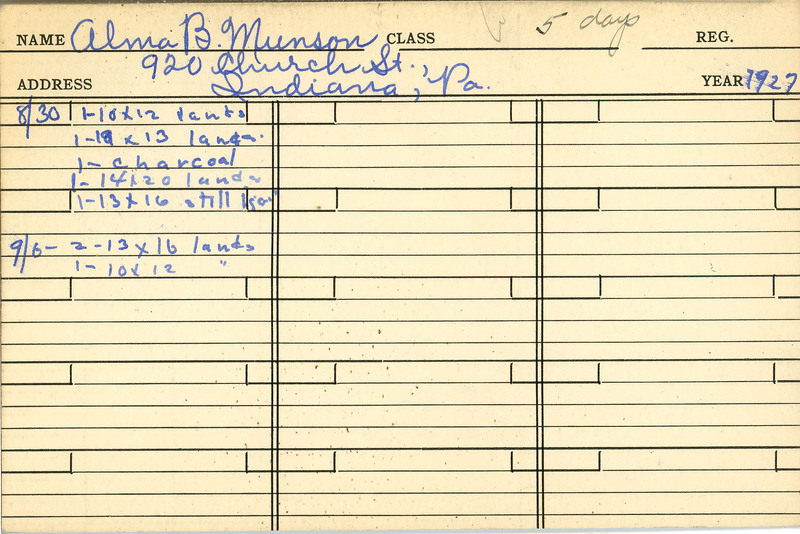 NAME Alma B. Munson CLASS 5 days REG.
920 Church St.,
ADDRESS Indiana, Pa. YEAR 1927
8/30 1-10x12 lands
1-18 x 13 lands.
1- charcoal
1-14x20 lands
1-13x16 still
9/6- 2-13x16 lands
1-10x12 "